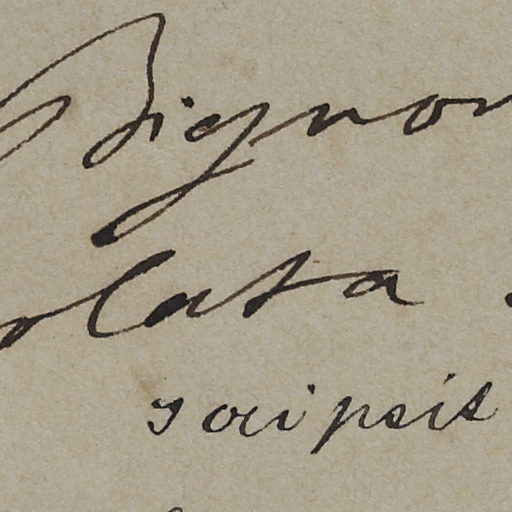 Bignon
olata
scripsit